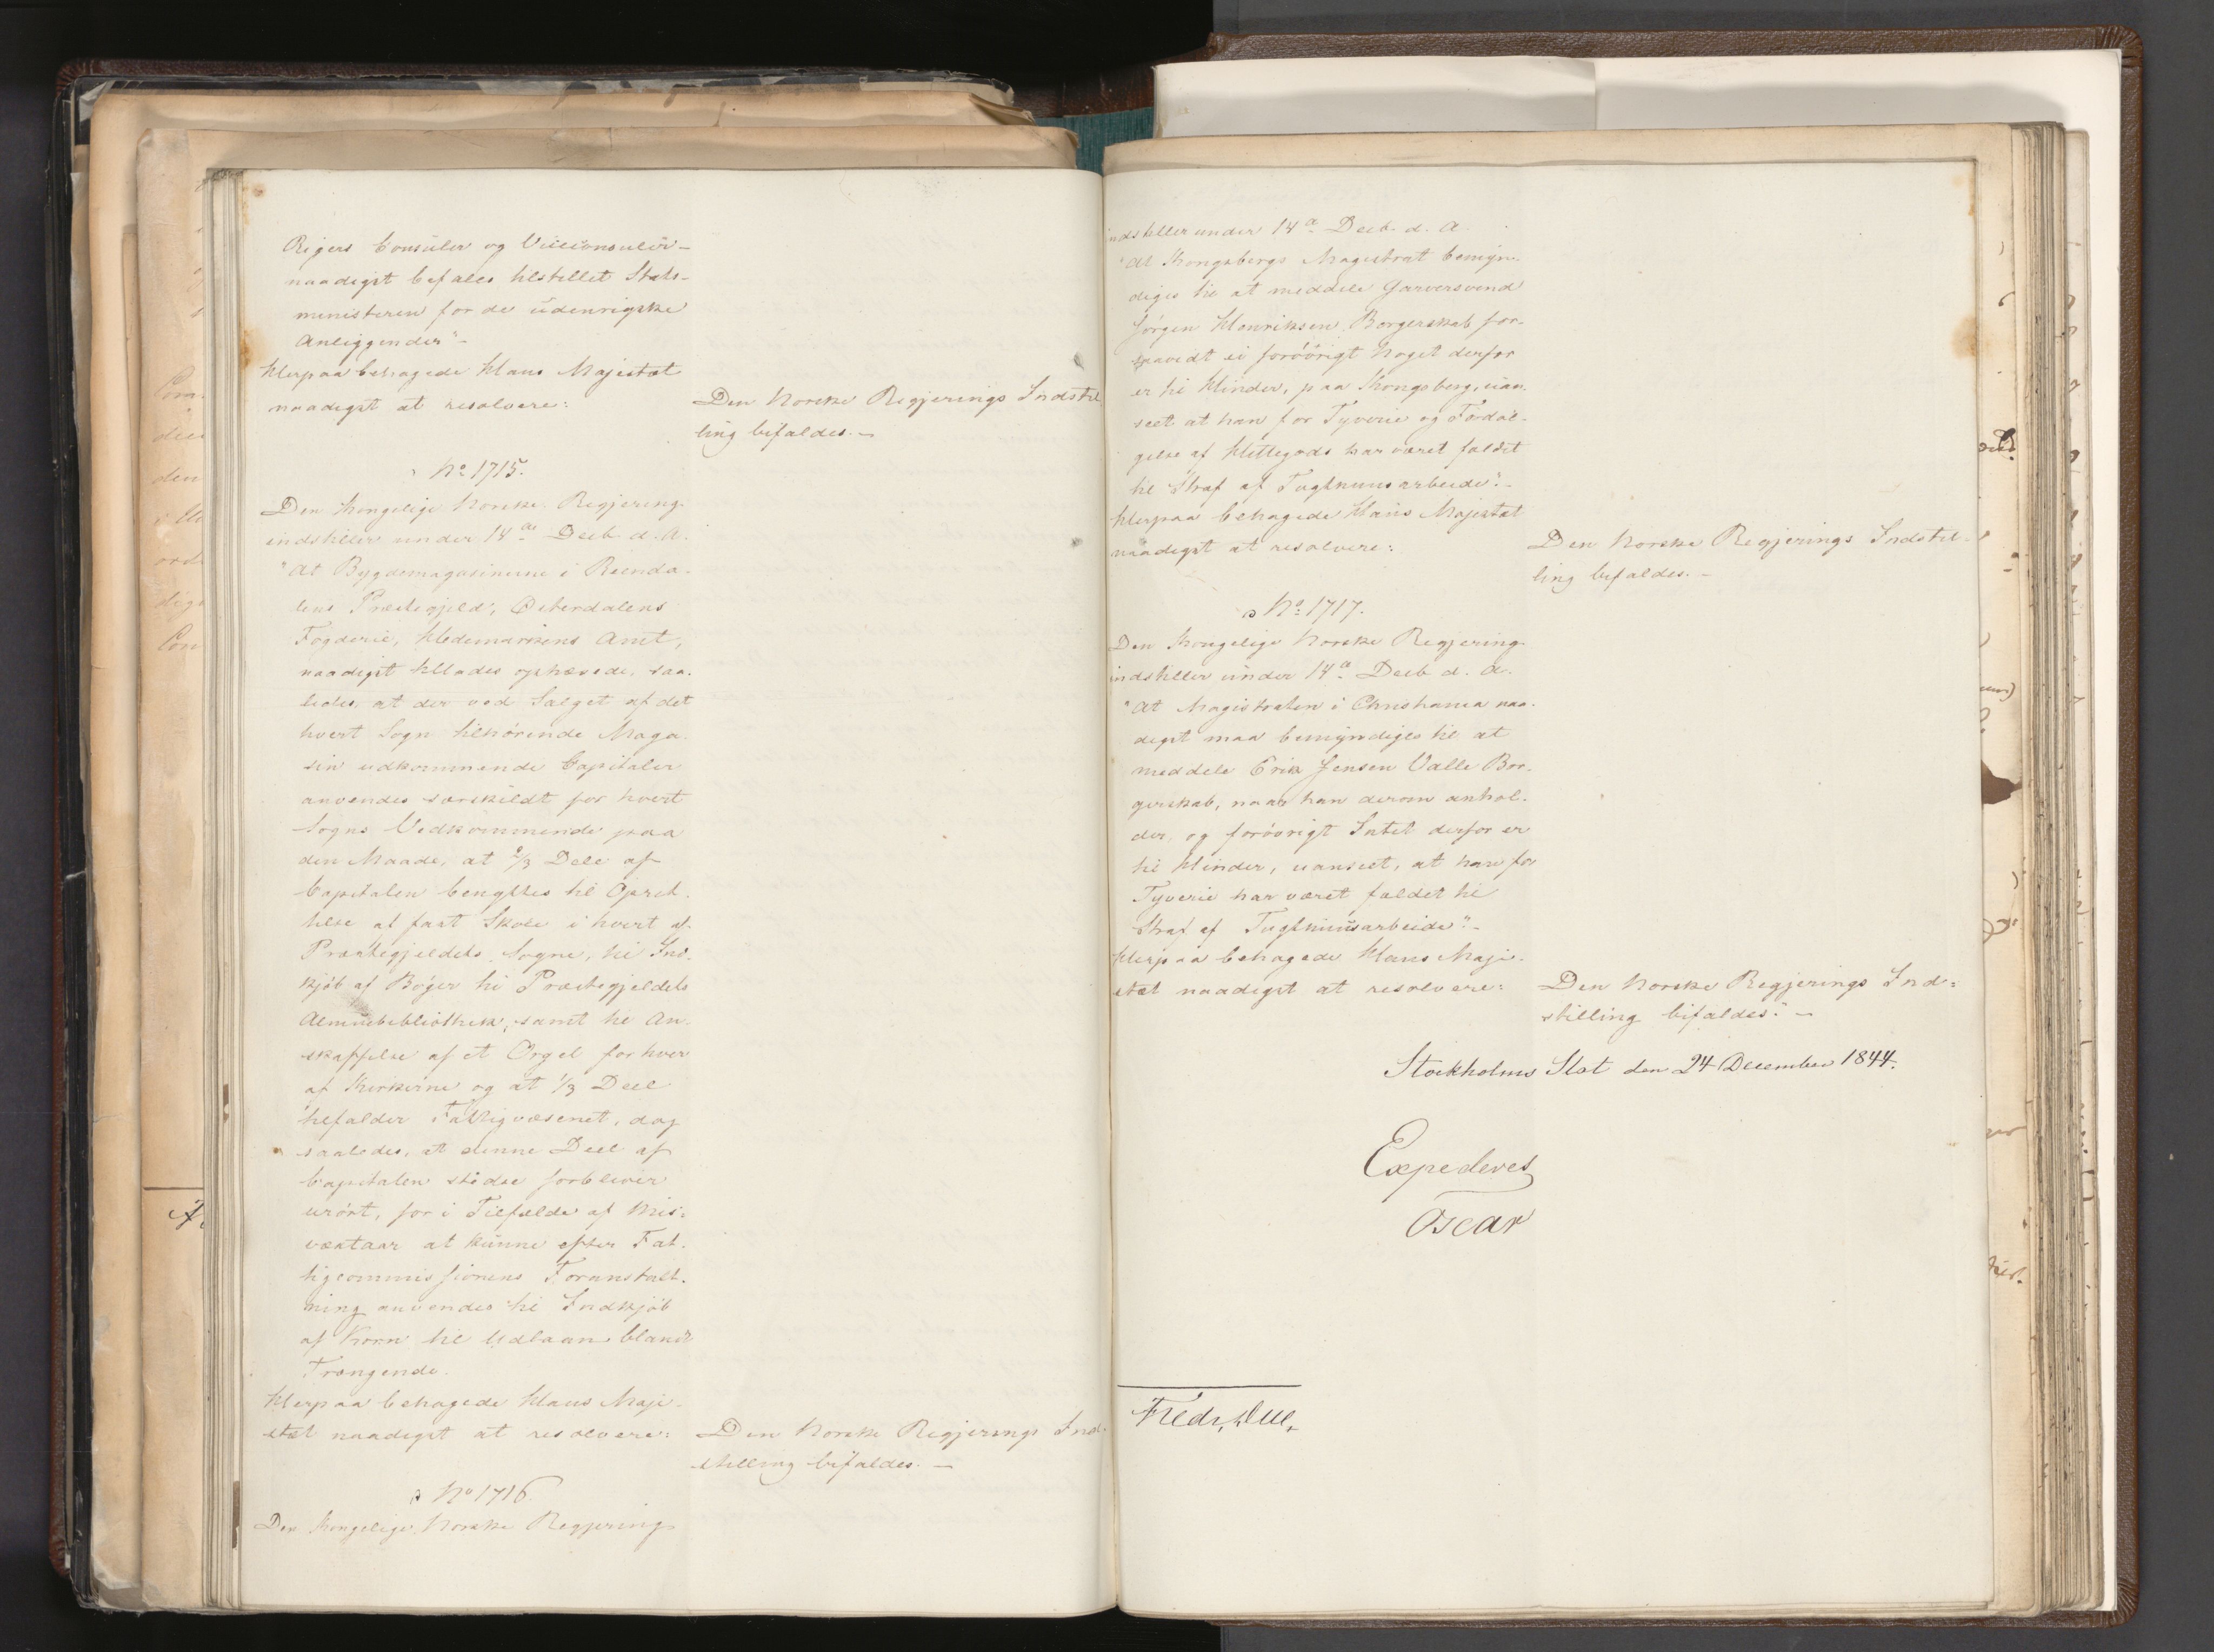 Rigers Consuler og Viceconsuler
naadigst befales tilstillet Stats-
ministeren for de udenrigske
Anliggender"-
Herpaa behagede Hans Majestæt
naadigst at resolvere:
Den Norske Regjerings Indstil-
ling bifaldes.-
No 1715.
Den Kongelige Norske Regjering
indstiller under 14de Decb. d. A.
"At Bygdemagasinerne i Reenda-
lens Præstegjeld, Østerdalens
Fogderie, Hedemarkens Amt,
naadigst tillades ophævede, saa-
ledes, at der ved Salget af det
hvert Sogn tilhörende Maga-
sin udkommende Capitaler
anvendes særskildt for hvert
Sogns Vedkommende paa
den Maade, at 2/3 Dele af
Capitalen benyttes til Opret-
telse af fast Skole i hvert af
Præstegjeldets Sogne, til Ind-
kjöb af Böger til Præstegjeldets
Almuebibliothek, samt til An-
skaffelse af et Orgel for hver
af Kirkerne og at 1/3 Deel
tilfalder Fattigvæsenet, dog
saaledes, at denne Deel af
Capitalen stedse forbliver
urört, for i Tilfælde af Mis-
væxtaar at kunne efter Fat-
tigcommissionens Foranstalt-
ning anvendes til Indkjöb
af Korn til Udlaan blandt
Trængende.
Herpaa behagede Hans Maje-
stæt naadigst at resolvere:
Den Norske Regjerings Ind-
stilling bifaldes.-
No 1716.
Den Kongelige Norske Regjering
indstiller under 14de Decb. d. A.
"At Kongsbergs Magistrat bemyn-
diges til at meddele Garversvend
Jörgen Henriksen Borgerskab for-
saavidt ei foröörigt Noget derfor
er til Hinder, paa Kongsberg, uan-
seet at han for Tyverie og Fordöl-
gelse af Hittegods har været faldet
til Straf af Tugthuusarbeide".-
Herpaa behagede Hans Majestæt
naadigst at resolvere:
Den Norske Regjerings Indstil-
ling bifaldes.-
No 1717.
Den Kongelige Norske Regjering
indstiller under 14de Decb. d. A.
"At Magistraten i Christiania naa-
digst maa bemyndiges til at
meddele Erik Jensen Valle Bor-
gerskab, naar han derom anhol-
der, og forövrigt Intet derfor er
til Hinder, uanseet, at han for
Tyverie har været fældet til
Straf af Tugthuusarbeide".-
Herpaa behagede Hans Maje-
stæt naadigst at resolvere:
Den Norske Regjerings Ind-
stilling bifaldes.-
Stockholms Slot den 24 December 1844.
Expederes
Oscar
Fredr. Due